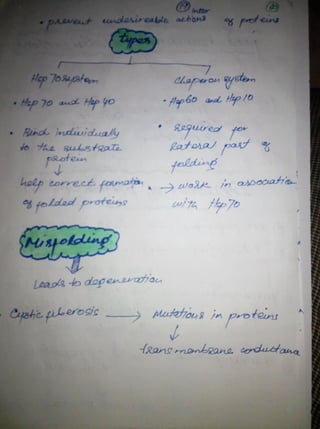 Inter
• prevent undesireable actions of proteins
Types
Hsp 70 system
Chaperon system
• Hsp 70 and Hsp 40
• Hsp60 and Hsp 10
• Bind individually
to the substrate
protein
↓
help correct formation
of folded proteins
• required for
lateral part of
folding
• → work in association
with Hsp70
Misfolding
Leads to degeneration
Cystic fiberosis → Mutations in proteins
↓
trans membrane conductana